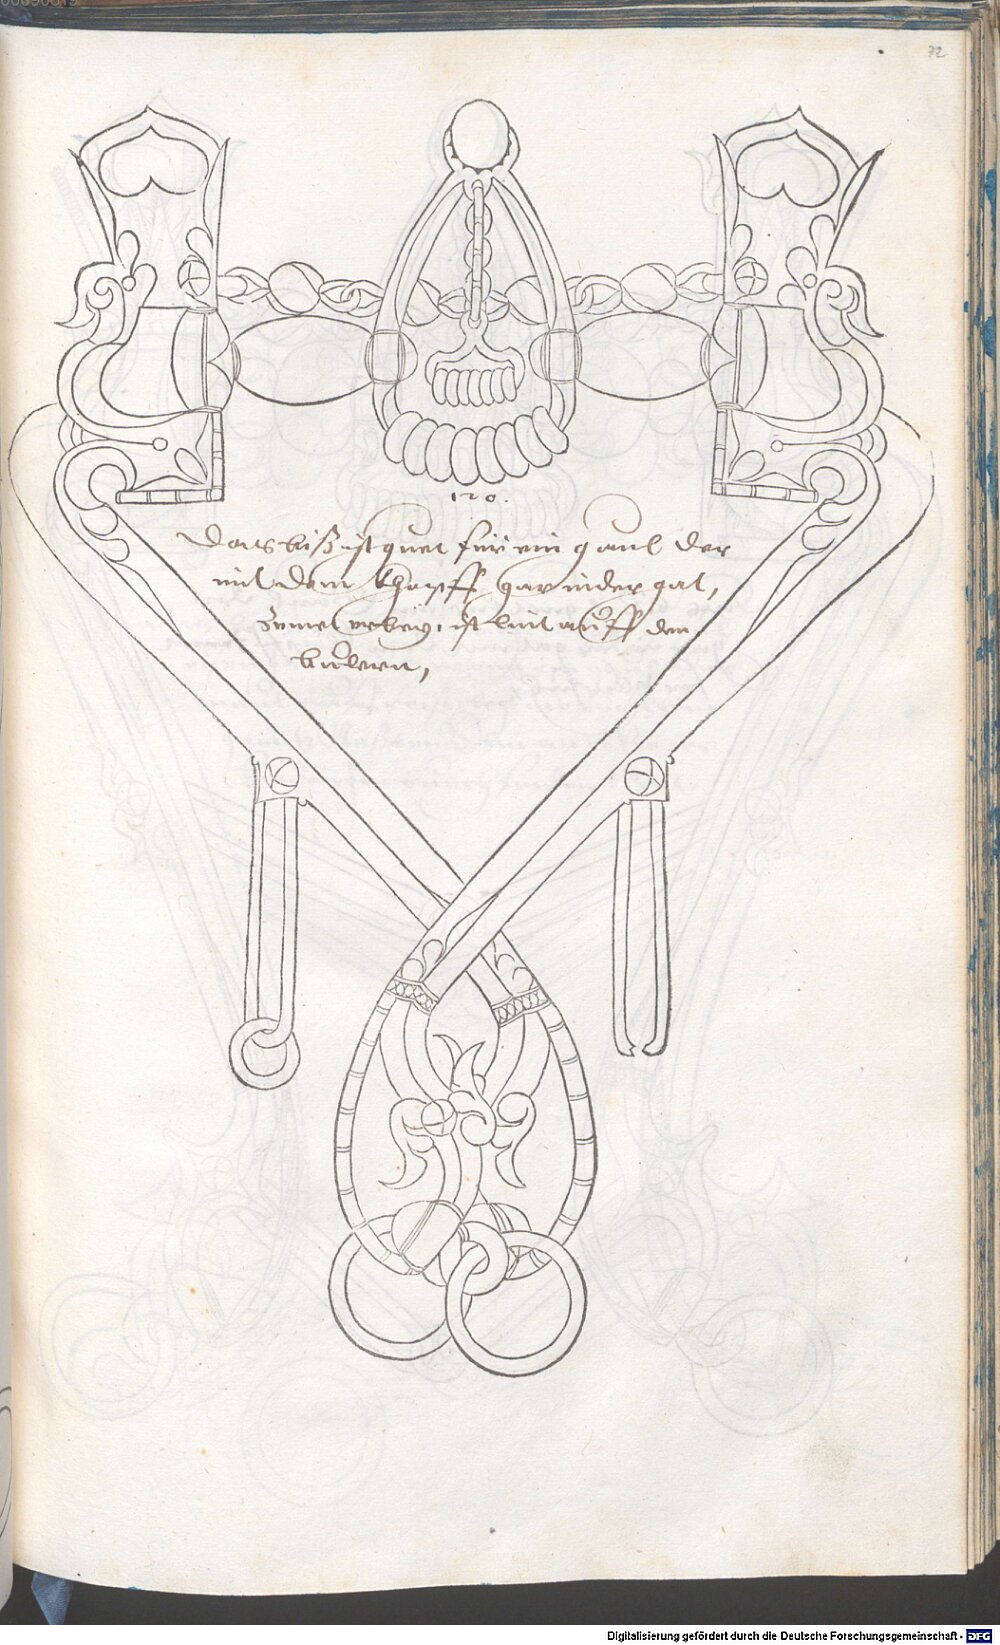 72
120.
Das biß ist guet für ein gaul der
mit dem khopff gar nider gat,
ist lind auff den
Digitalisierung gefördert durch die Deutsche Forschungsgemeinschaft - DFG